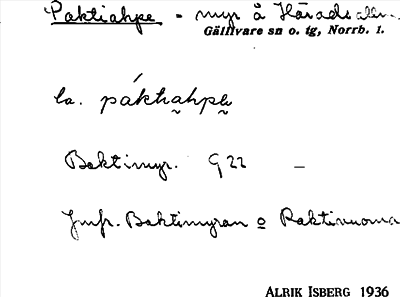 Paktiahpe - myr å Häradsallm.
Gällivare sn o. tg, Norrb. l.
la. páktiahpe
Baktimyr. G 22 –
Jmfr. Baktimyran o Paktivuoma
ALRIK ISBERG 1936